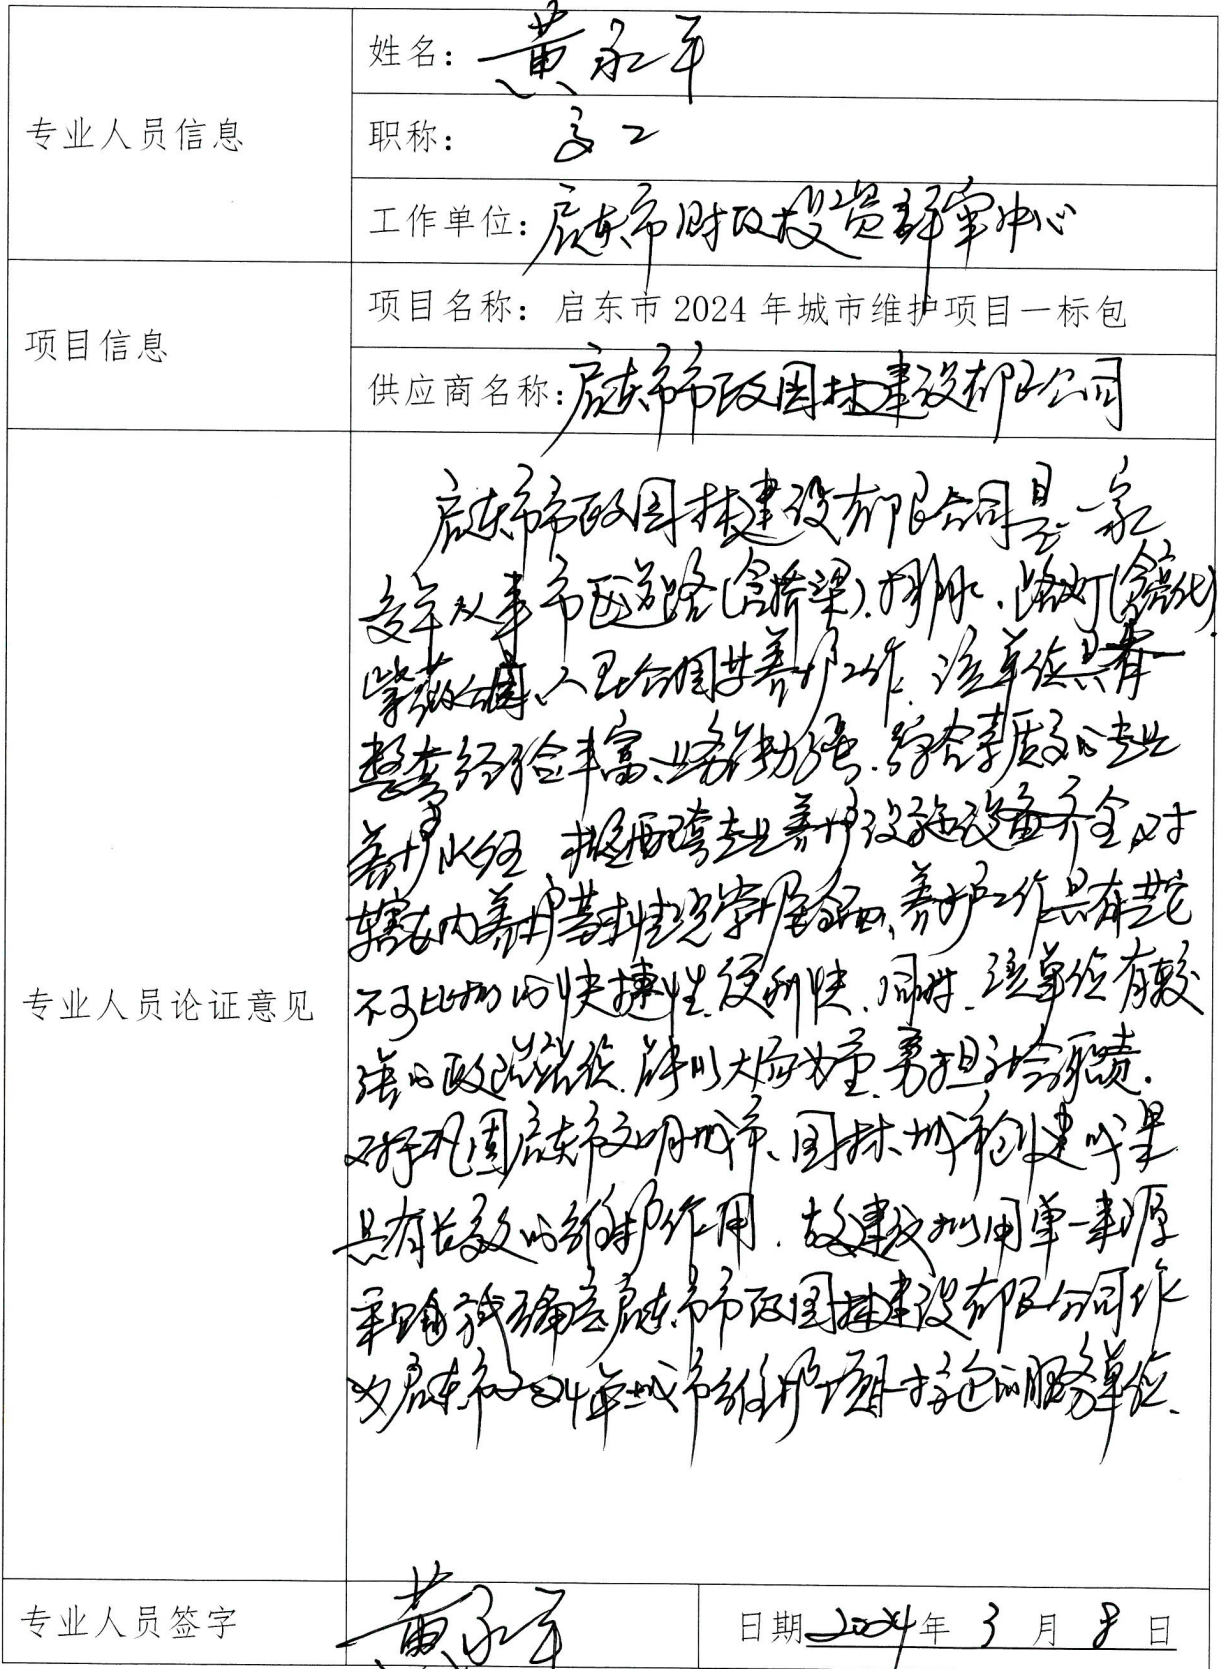 专业人员信息
姓名：黄永平
职称：高工
工作单位：启东市财政投资评审中心
项目信息
项目名称：启东市 2024 年城市维护项目一标包
供应商名称：启东市市政园林建设有限公司
专业人员论证意见
启东市市政园林建设有限公司是一家
多年从事市区道路(含桥梁)、排水、路灯(含亮化)
紫薇公园、人民公园等养护工作，该单位具有
整套经验丰富、业务能力强、综合素质高的专业
养护队伍，搭配专业养护设施设备齐全，对
辖区内养护基本情况掌握全面，养护工作具有其它
不可比拟的快捷性、便利性，同时，该单位有较
强的政治站位，能以大局为重，勇担社会职责，
对于巩固启东市文明城市、园林城市创建成果
具有长效的维护作用，故建议拟用单一来源
采购方式确定启东市市政园林建设有限公司作
为启东市2024年城市维护项目一标包的服务单位。
专业人员签字
黄永平
日期 2024 年 3 月 8 日